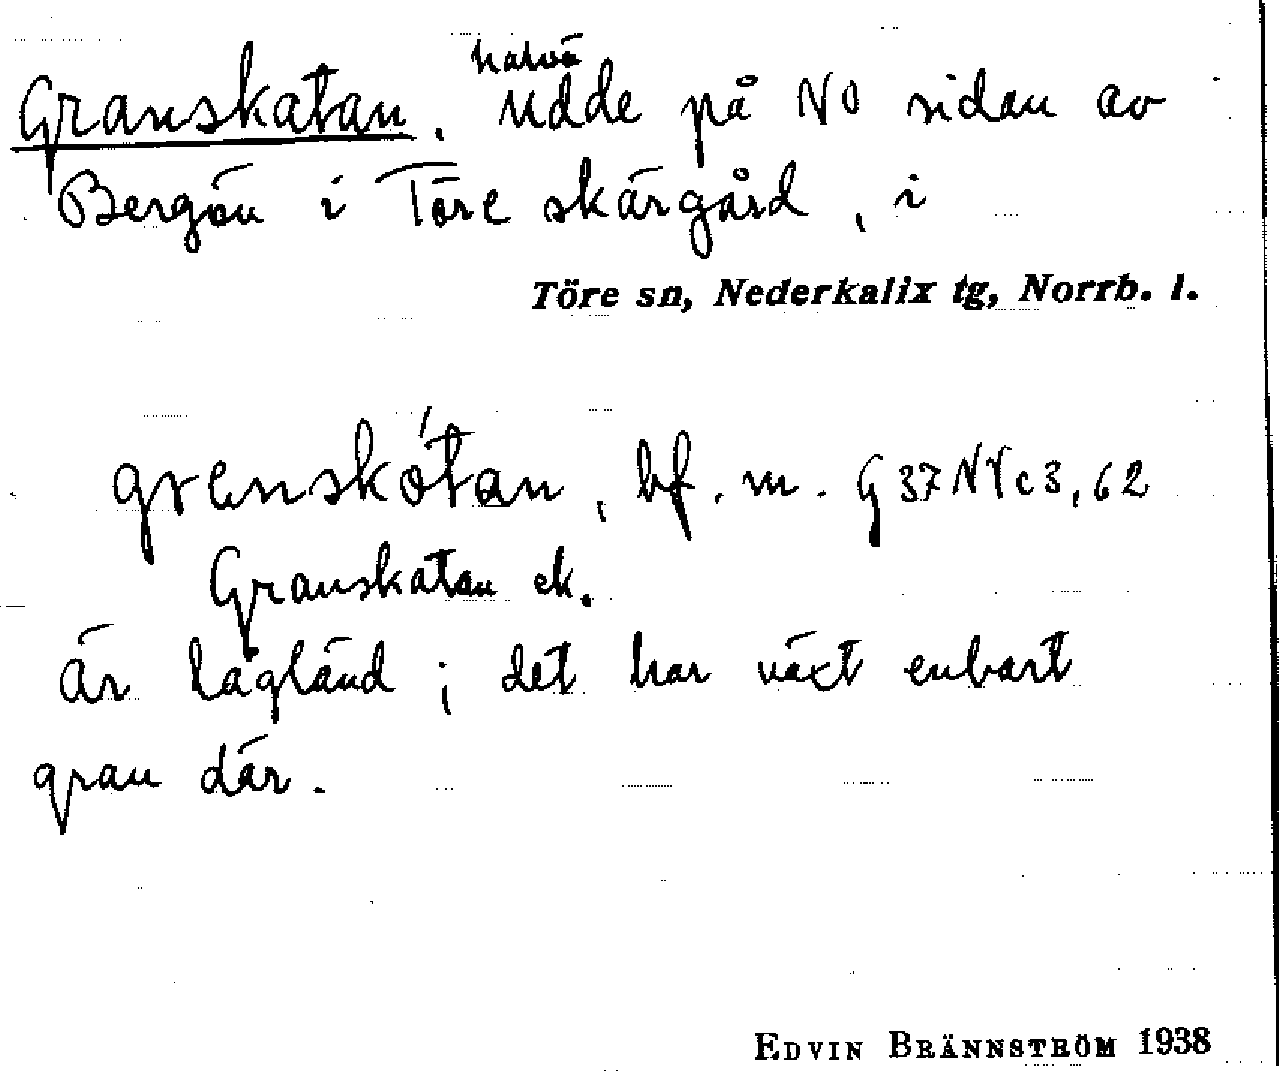 halvö
Granskatan. Udde på NO sidan av
Bergön i Töre skärgård, i
Töre sn, Nederkalix tg, Norrb. l.
grenskótan, bf. m. G37NVc3,62
Granskatan ek.
är lågländ; det har växt enbart
gran där.
EDVIN BRÄNNSTRÖM 1938